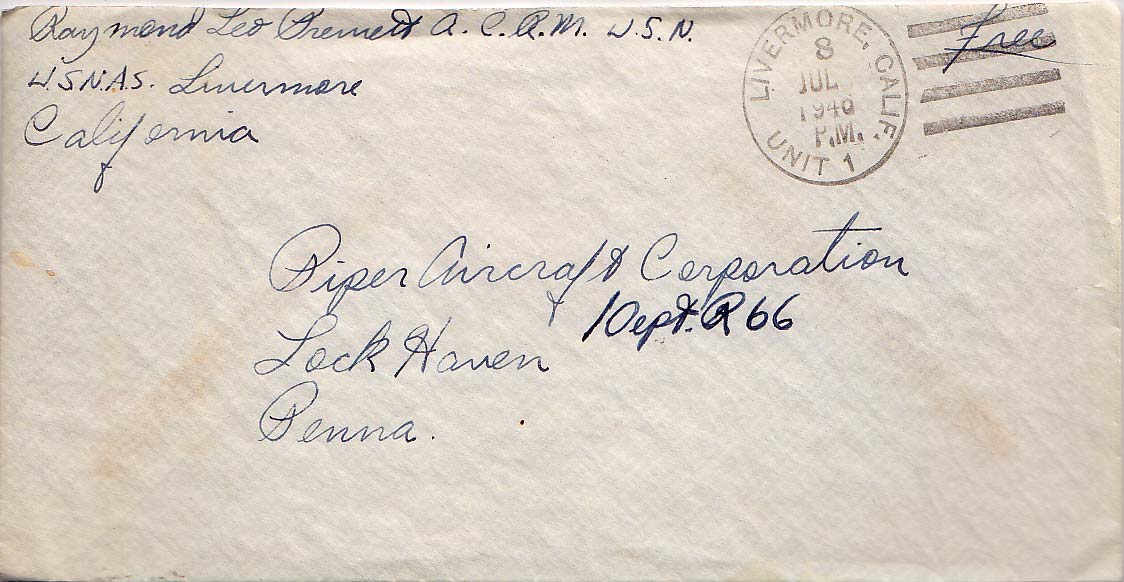 Raymond Leo A. C. R. M. U.S.N.
U.S.N.A.S. Livermore
California
LIVERMORE, CALIF.
8
JUL
1946
P.M.
UNIT 1
Free
Piper Aircraft Corporation
Dept. R 66
Lock Haven
Penna.